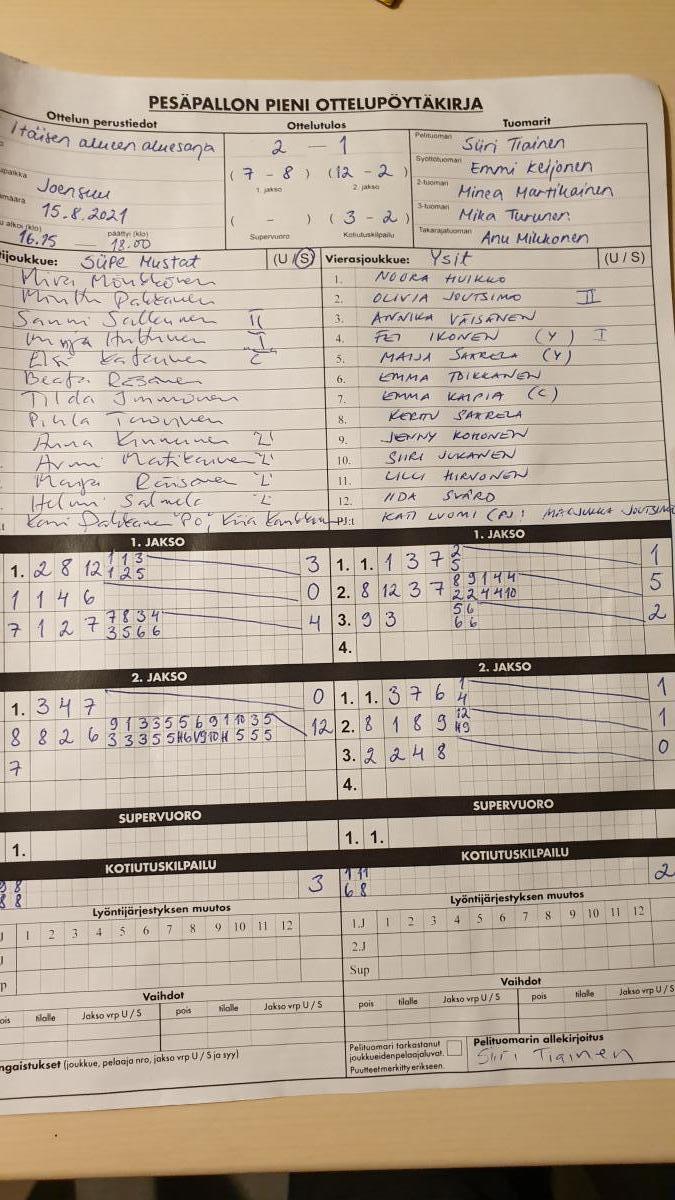 PESÄPALLON PIENI OTTELUPÖYTÄKIRJA
Ottelun perustiedot Ottelutulos Tuomarit
Itäisen alueen aluesarja 2 - 1 Pelituomari Siiri Tiainen
( 7 - 8 ) ( 12 - 2 ) Syöttötuomari Emmi Keijonen
Joensuu 1. jakso 2. jakso 2-tuomari Minea Martikainen
15.8.2021 ( - ) ( 3 - 2 ) 3-tuomari Mika Turunen
alkoi (klo) 16.25 päättyi (klo) 18.00 Supervuoro Kotiutuskilpailu Takarajatuomari Anu Mikkonen
ijoukkue: SÜPE Mustat (U / S) Vierasjoukkue: Ysit (U / S)
1. NOORA HUIKKO
Minttu Pakkanen 2. OLIVIA JOUTSIMO II
Sanni II 3. ANNIKA VÄISÄNEN
Huttunen I 4. IKONEN (Y) I
Elsi 5. MAIJA SAARELA (Y)
Beata Räsänen 6. EMMA TOIKKANEN
Tilda Immonen 7. EMMA KAIPIA (C)
Pihla 8. KERTTU SAARELA
Anna Kinnunen "L" 9. JENNY KOHONEN
Armi Matikainen "L" 10. SIIRI JUKANEN
Räisänen "L" 11. LILLI HIRVONEN
Helmi Salmela "L" 12. IIDA SVÄRD
PJ:t KATI LUOMI (PJ: JOUTSIMO
1. JAKSO 1. JAKSO
1. 2 8 12 1 1 3 3 1. 1. 1 3 7 2 1
1 2 5 5
1 1 4 6 0 2. 8 12 3 7 8 9 1 4 4 5
2 2 4 4 10
7 1 2 7 7 8 3 4 4 3. 9 3 5 6 2
3 5 6 6 6 6
4.
2. JAKSO 2. JAKSO
1. 3 4 7 0 1. 1. 3 7 6 1 1
4
8 8 2 6 9 1 3 3 5 5 6 9 1 10 3 5 12 2. 8 1 8 9 12 1
3 3 3 5 5 H6 V9 10 H 5 5 5 H9
7 3. 2 2 4 8 0
4.
SUPERVUORO SUPERVUORO
1. 1. 1.
KOTIUTUSKILPAILU KOTIUTUSKILPAILU
9 8 3 1 11 2
8 8 6 8
Lyöntijärjestyksen muutos Lyöntijärjestyksen muutos
J 1 2 3 4 5 6 7 8 9 10 11 12 1.J 1 2 3 4 5 6 7 8 9 10 11 12
J 2.J
p Sup
Vaihdot Vaihdot
ois tilalle Jakso vrp U / S pois tilalle Jakso vrp U / S pois tilalle Jakso vrp U / S pois tilalle Jakso vrp U / S
ngaistukset (joukkue, pelaaja nro, jakso vrp U / S ja syy)
Pelituomari tarkastanut joukkueiden pelaajaluvat. Puutteet merkitty erikseen.
Pelituomarin allekirjoitus
Siiri Tiainen